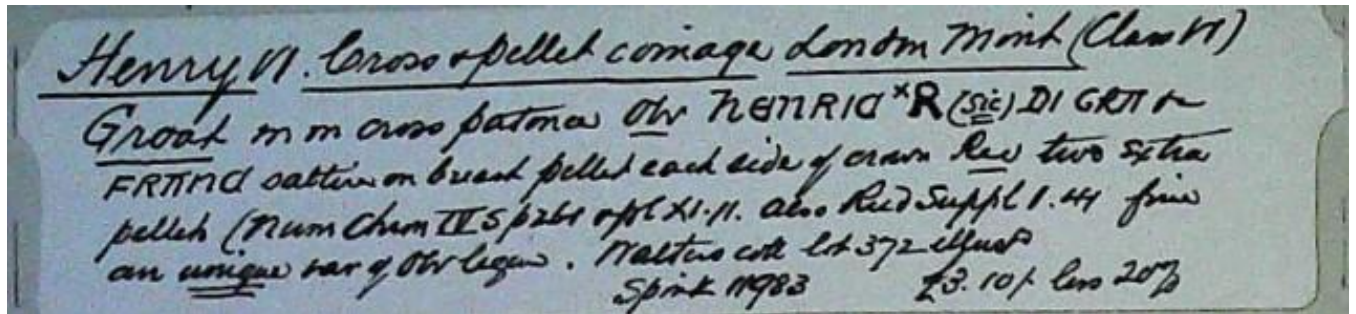 Henry VI. Cross & pellet coinage London Mint (Class VI)
Groat m m cross patonce Obv hENRIC × R (sic) DI GRA &
FRANC saltire on breast pellet each side of crown Rev two extra
pellets (Num Chron IV S p261 & pl XI.11. also Rud Suppl 1.41 fine
an unique var of Obv legend. Walters coll lot 372 illust
Spink 11983 £3.10/- less 20%